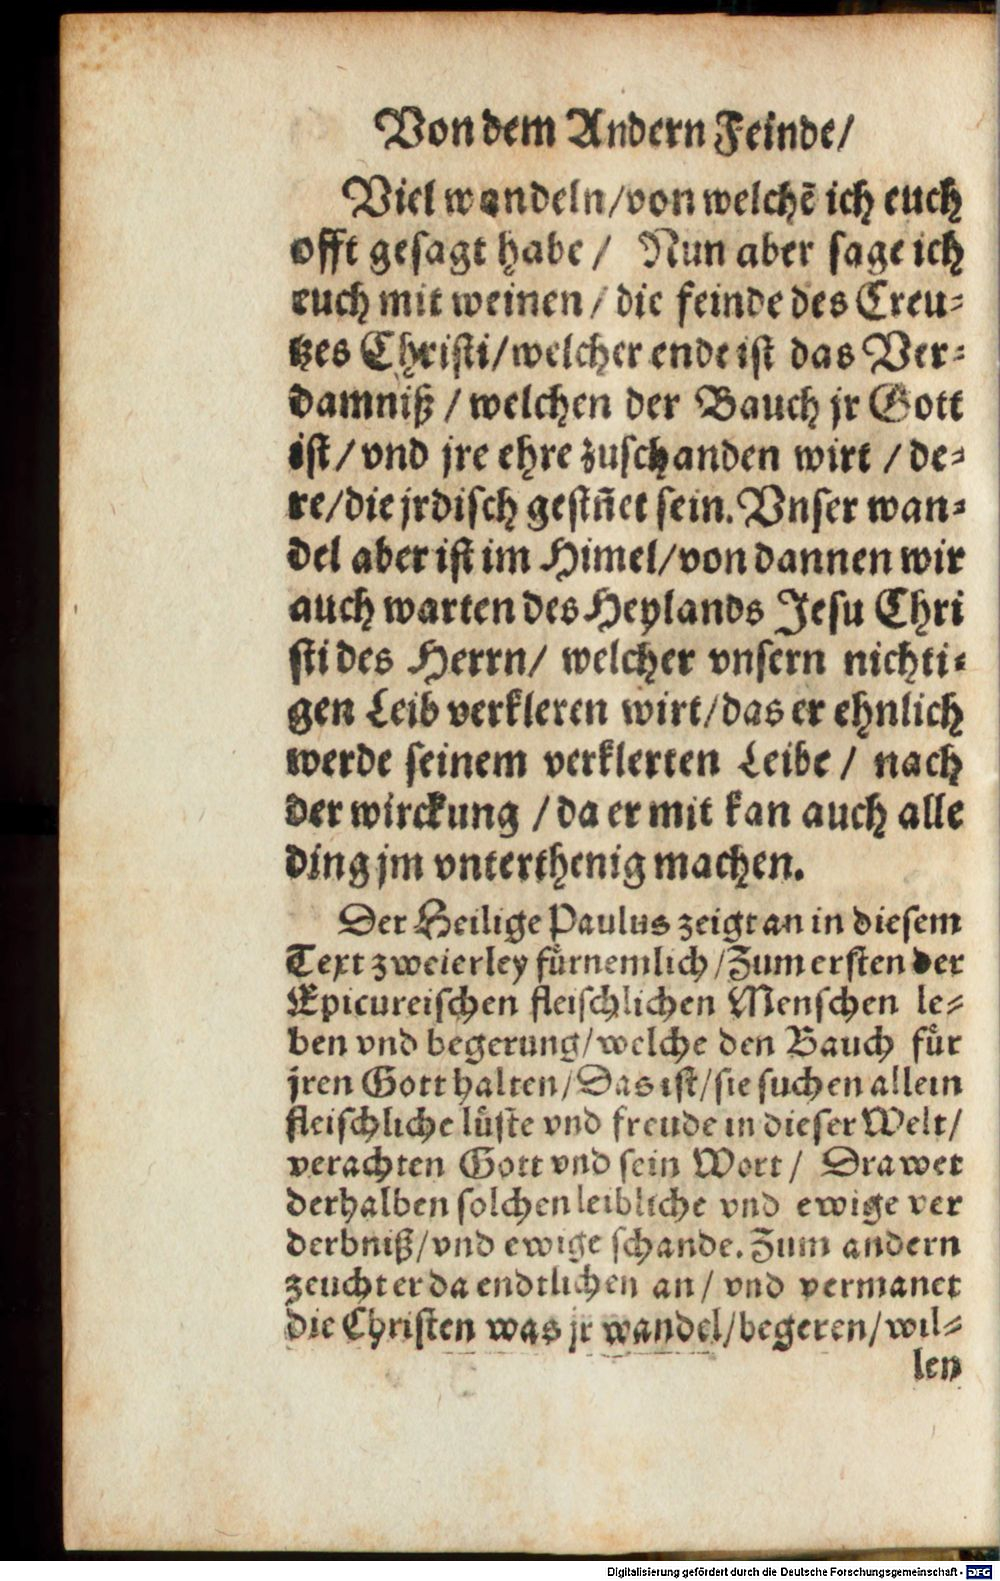 Von dem Andern Feinde/
Viel wandeln/von welchē ich euch
offt gesagt habe / Nun aber sage ich
euch mit weinen / die feinde des Creu-
tzes Christi/welcher ende ist das Ver-
damniß / welchen der Bauch jr Gott
ist/ vnd jre ehre zuschanden wirt / de-
re/die jrdisch gesin̄et sein. Vnser wan-
del aber ist im Himel/von dannen wir
auch warten des Heylands Jesu Chri
sti des Herrn/ welcher vnsern nichti-
gen Leib verkleren wirt/das er ehnlich
werde seinem verklerten Leibe / nach
der wirckung / da er mit kan auch alle
ding jm vnterthenig machen.
Der Heilige Paulus zeigt an in diesem
Text zweierley fürnemlich/Zum ersten der
Epicureischen fleischlichen Menschen le-
ben vnd begerung/welche den Bauch für
jren Gott halten/Das ist/sie suchen allein
fleischliche lüste vnd freude in dieser Welt/
verachten Gott vnd sein Wort / Drawet
derhalben solchen leibliche vnd ewige ver
derbniß/vnd ewige schande. Zum andern
zeucht er da endtlichen an / vnd vermanet
die Christen was jr wandel/begeren/wil-
len
Digitalisierung gefördert durch die Deutsche Forschungsgemeinschaft - DFG